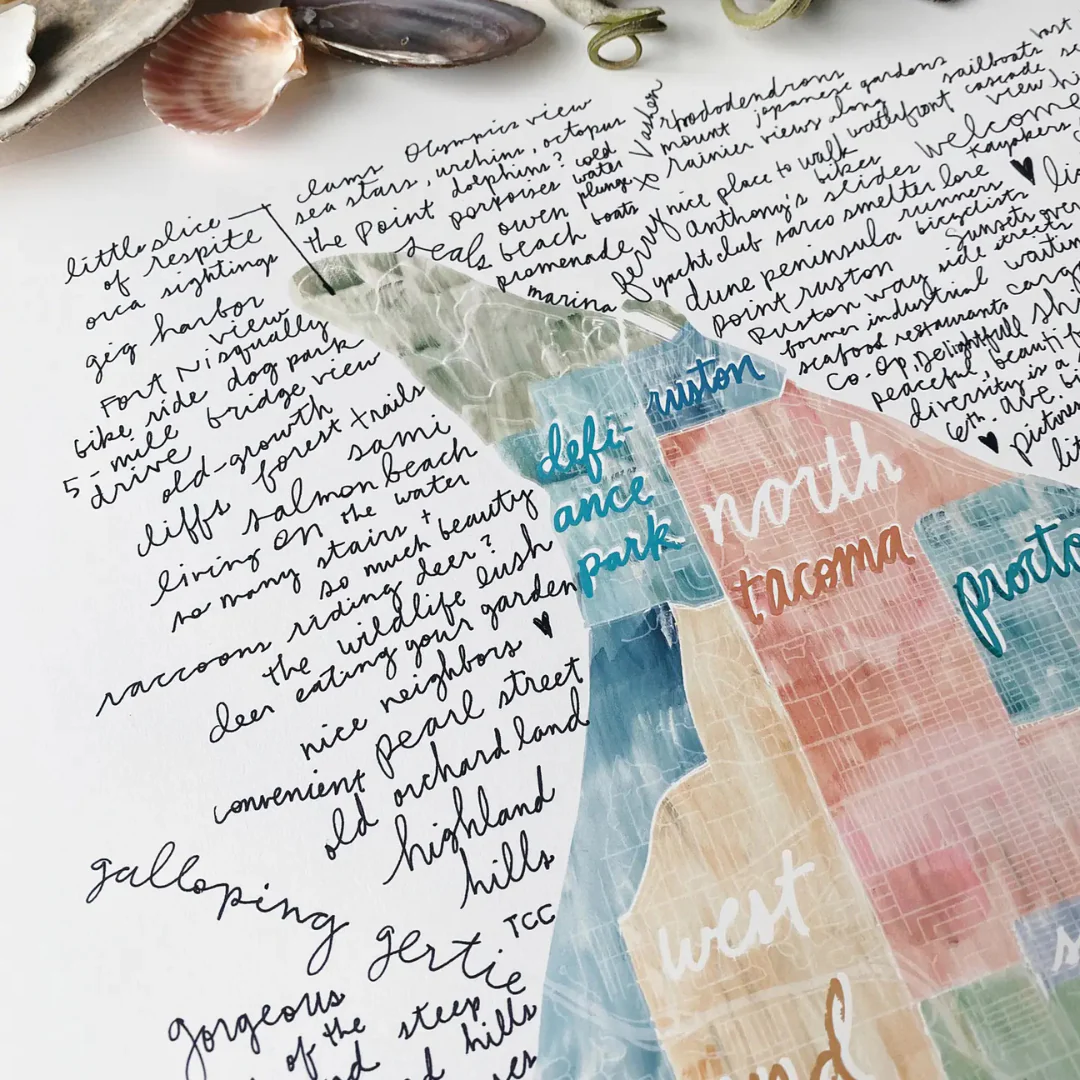 clams Olympics view
sea stars, urchins, octopus
dolphins? cold
the Point porpoises water
plunge
seals owen boats
beach
promenade
marina
ferry
Vashon
xo
rhododendrons
mount japanese gardens sailboats
rainier views along cascade
nice place to walk waterfront view
Anthony's bikes welcome
yacht club sarco slides Kayakers
smelter lore
dune peninsula runners
bicyclists
point ruston sunsets over
Ruston way side streets
former industrial waiting
seafood restaurants cargo
Co-Op, Delightfull
peaceful, beauti
diversity is a
6th. ave.
little slice
of respite
orca sightings
gig harbor
view
Fort Nisqually
bike ride dog park
5-mile bridge view
drive
old-growth
forest trails
cliffs sami
salmon beach
living on the water
so many stairs +
so much beauty
raccoons riding deer?
the wildlife lush
deer eating your garden
nice neighbors
convenient pearl street
old orchard land
highland
hills
TCC
galloping
gertie
gorgeous
of the steep
hills
defi-
ance
park
ruston
north
tacoma
procto
west
nd
s